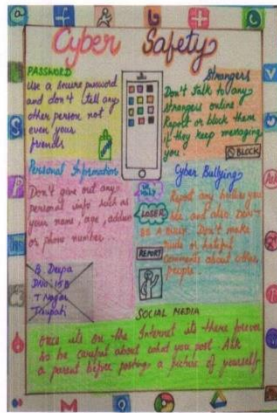 Cyber Safety
PASSWORD
Use a secure password
and don't tell any
other person not
even your
friends
Strangers
Don't Talk to any
strangers online
Report or block them
if they keep messaging
you.
BLOCK
Personal Information
Don't give out any
personal info such as
your name, age, address
or phone number.
Cyber Bullying
LOSER
REPORT
Report any bullies you
see and also. Don't
be a bully. Don't make
rude or hateful
comments about other
people.
B. Deepa
T Nagar
SOCIAL MEDIA
Once its on the Internet its there forever
so be careful about what you post. Ask
a parent before posting a picture of yourself